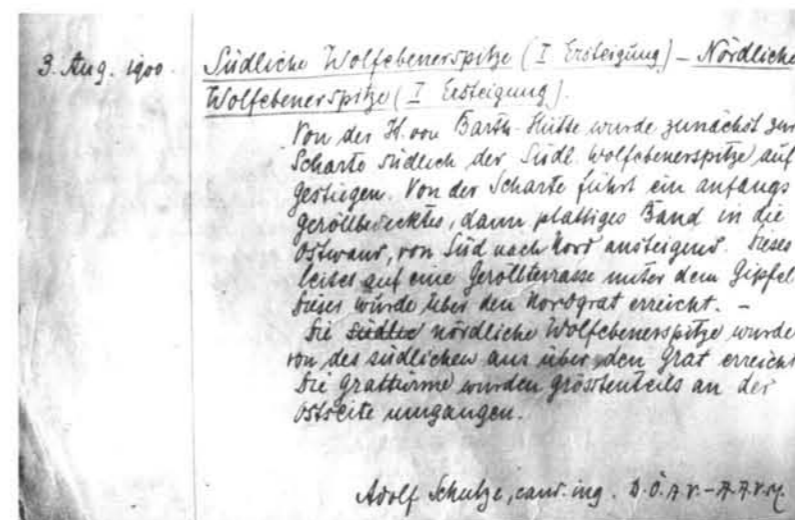 3. Aug. 1900. Südliche Wolfebenerspitze (I Ersteigung) – Nördliche
Wolfebenerspitze (I Ersteigung).
Von der H. von Barth-Hütte wurde zunächst zur
Scharte südlich der Südl. Wolfebenerspitze auf
gestiegen. Von der Scharte führt ein anfangs
geröllbedecktes, dann plattiges Band in die
Ostwand, von Süd nach Nord ansteigend. Dieses
leitet auf eine Geröllterrasse unter dem Gipfel
Dieser wurde über den Nordgrat erreicht. –
Die südlic nördliche Wolfebenerspitze wurde
von der südlichen aus über den Grat erreicht
Die Grattürme wurden grösstenteils an der
Ostseite umgangen.
Adolf Schulze, cand. ing. D.Ö.A.V. – A.A.V.M.